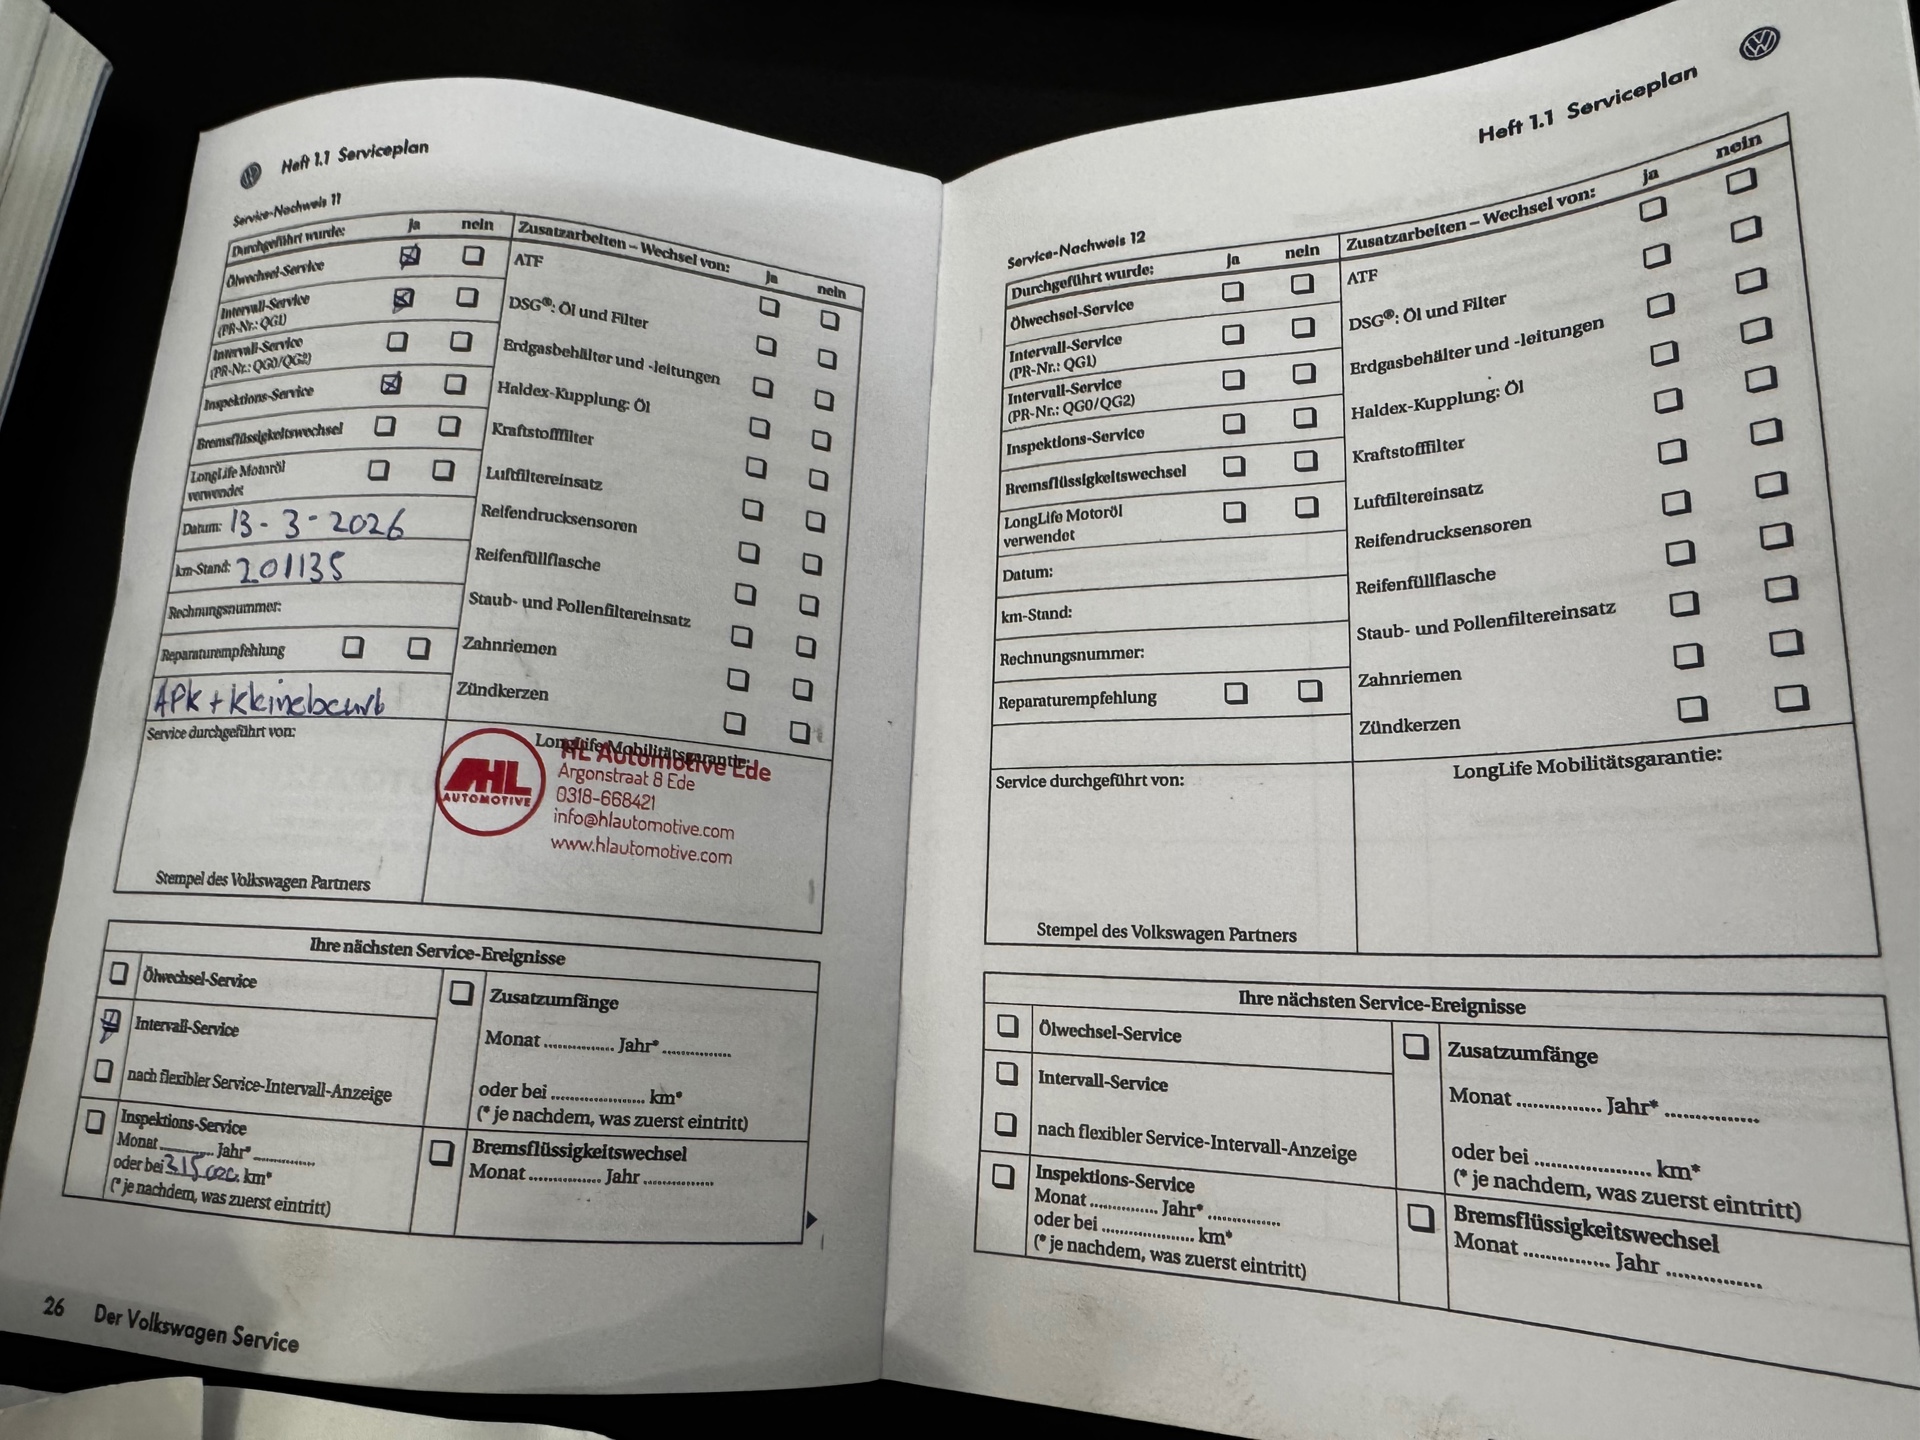 Heft 1.1 Serviceplan
Service-Nachweis 11
Durchgeführt wurde: ja nein
Ölwechsel-Service
Intervall-Service
(PR-Nr.: QG1)
Intervall-Service
(PR-Nr.: QG0/QG2)
Inspektions-Service
Bremsflüssigkeitswechsel
LongLife Motoröl
verwendet
Datum: 13-3-2026
km-Stand: 201135
Rechnungsnummer:
Reparaturempfehlung
APK +
Service durchgeführt von:
Stempel des Volkswagen Partners
Zusatzarbeiten – Wechsel von: ja nein
ATF
DSG®: Öl und Filter
Erdgasbehälter und -leitungen
Haldex-Kupplung: Öl
Kraftstofffilter
Luftfiltereinsatz
Reifendrucksensoren
Reifenfüllflasche
Staub- und Pollenfiltereinsatz
Zahnriemen
Zündkerzen
LongLife Mobilitätsgarantie:
HL AUTOMOTIVE
HL Automotive Ede
Argonstraat 8 Ede
0318-668421
info@hlautomotive.com
www.hlautomotive.com
Ihre nächsten Service-Ereignisse
Ölwechsel-Service
Intervall-Service
nach flexibler Service-Intervall-Anzeige
Inspektions-Service
Monat ............ Jahr* ............
oder bei 315000 km*
(* je nachdem, was zuerst eintritt)
Zusatzumfänge
Monat ............ Jahr* ............
oder bei ................ km*
(* je nachdem, was zuerst eintritt)
Bremsflüssigkeitswechsel
Monat ............ Jahr ............
26 Der Volkswagen Service
Heft 1.1 Serviceplan
Service-Nachweis 12
Durchgeführt wurde: ja nein
Ölwechsel-Service
Intervall-Service
(PR-Nr.: QG1)
Intervall-Service
(PR-Nr.: QG0/QG2)
Inspektions-Service
Bremsflüssigkeitswechsel
LongLife Motoröl
verwendet
Datum:
km-Stand:
Rechnungsnummer:
Reparaturempfehlung
Service durchgeführt von:
Stempel des Volkswagen Partners
Zusatzarbeiten – Wechsel von: ja nein
ATF
DSG®: Öl und Filter
Erdgasbehälter und -leitungen
Haldex-Kupplung: Öl
Kraftstofffilter
Luftfiltereinsatz
Reifendrucksensoren
Reifenfüllflasche
Staub- und Pollenfiltereinsatz
Zahnriemen
Zündkerzen
LongLife Mobilitätsgarantie:
Ihre nächsten Service-Ereignisse
Ölwechsel-Service
Intervall-Service
nach flexibler Service-Intervall-Anzeige
Inspektions-Service
Monat ............ Jahr* ............
oder bei ................ km*
(* je nachdem, was zuerst eintritt)
Zusatzumfänge
Monat ............ Jahr* ............
oder bei ................ km*
(* je nachdem, was zuerst eintritt)
Bremsflüssigkeitswechsel
Monat ............ Jahr ............